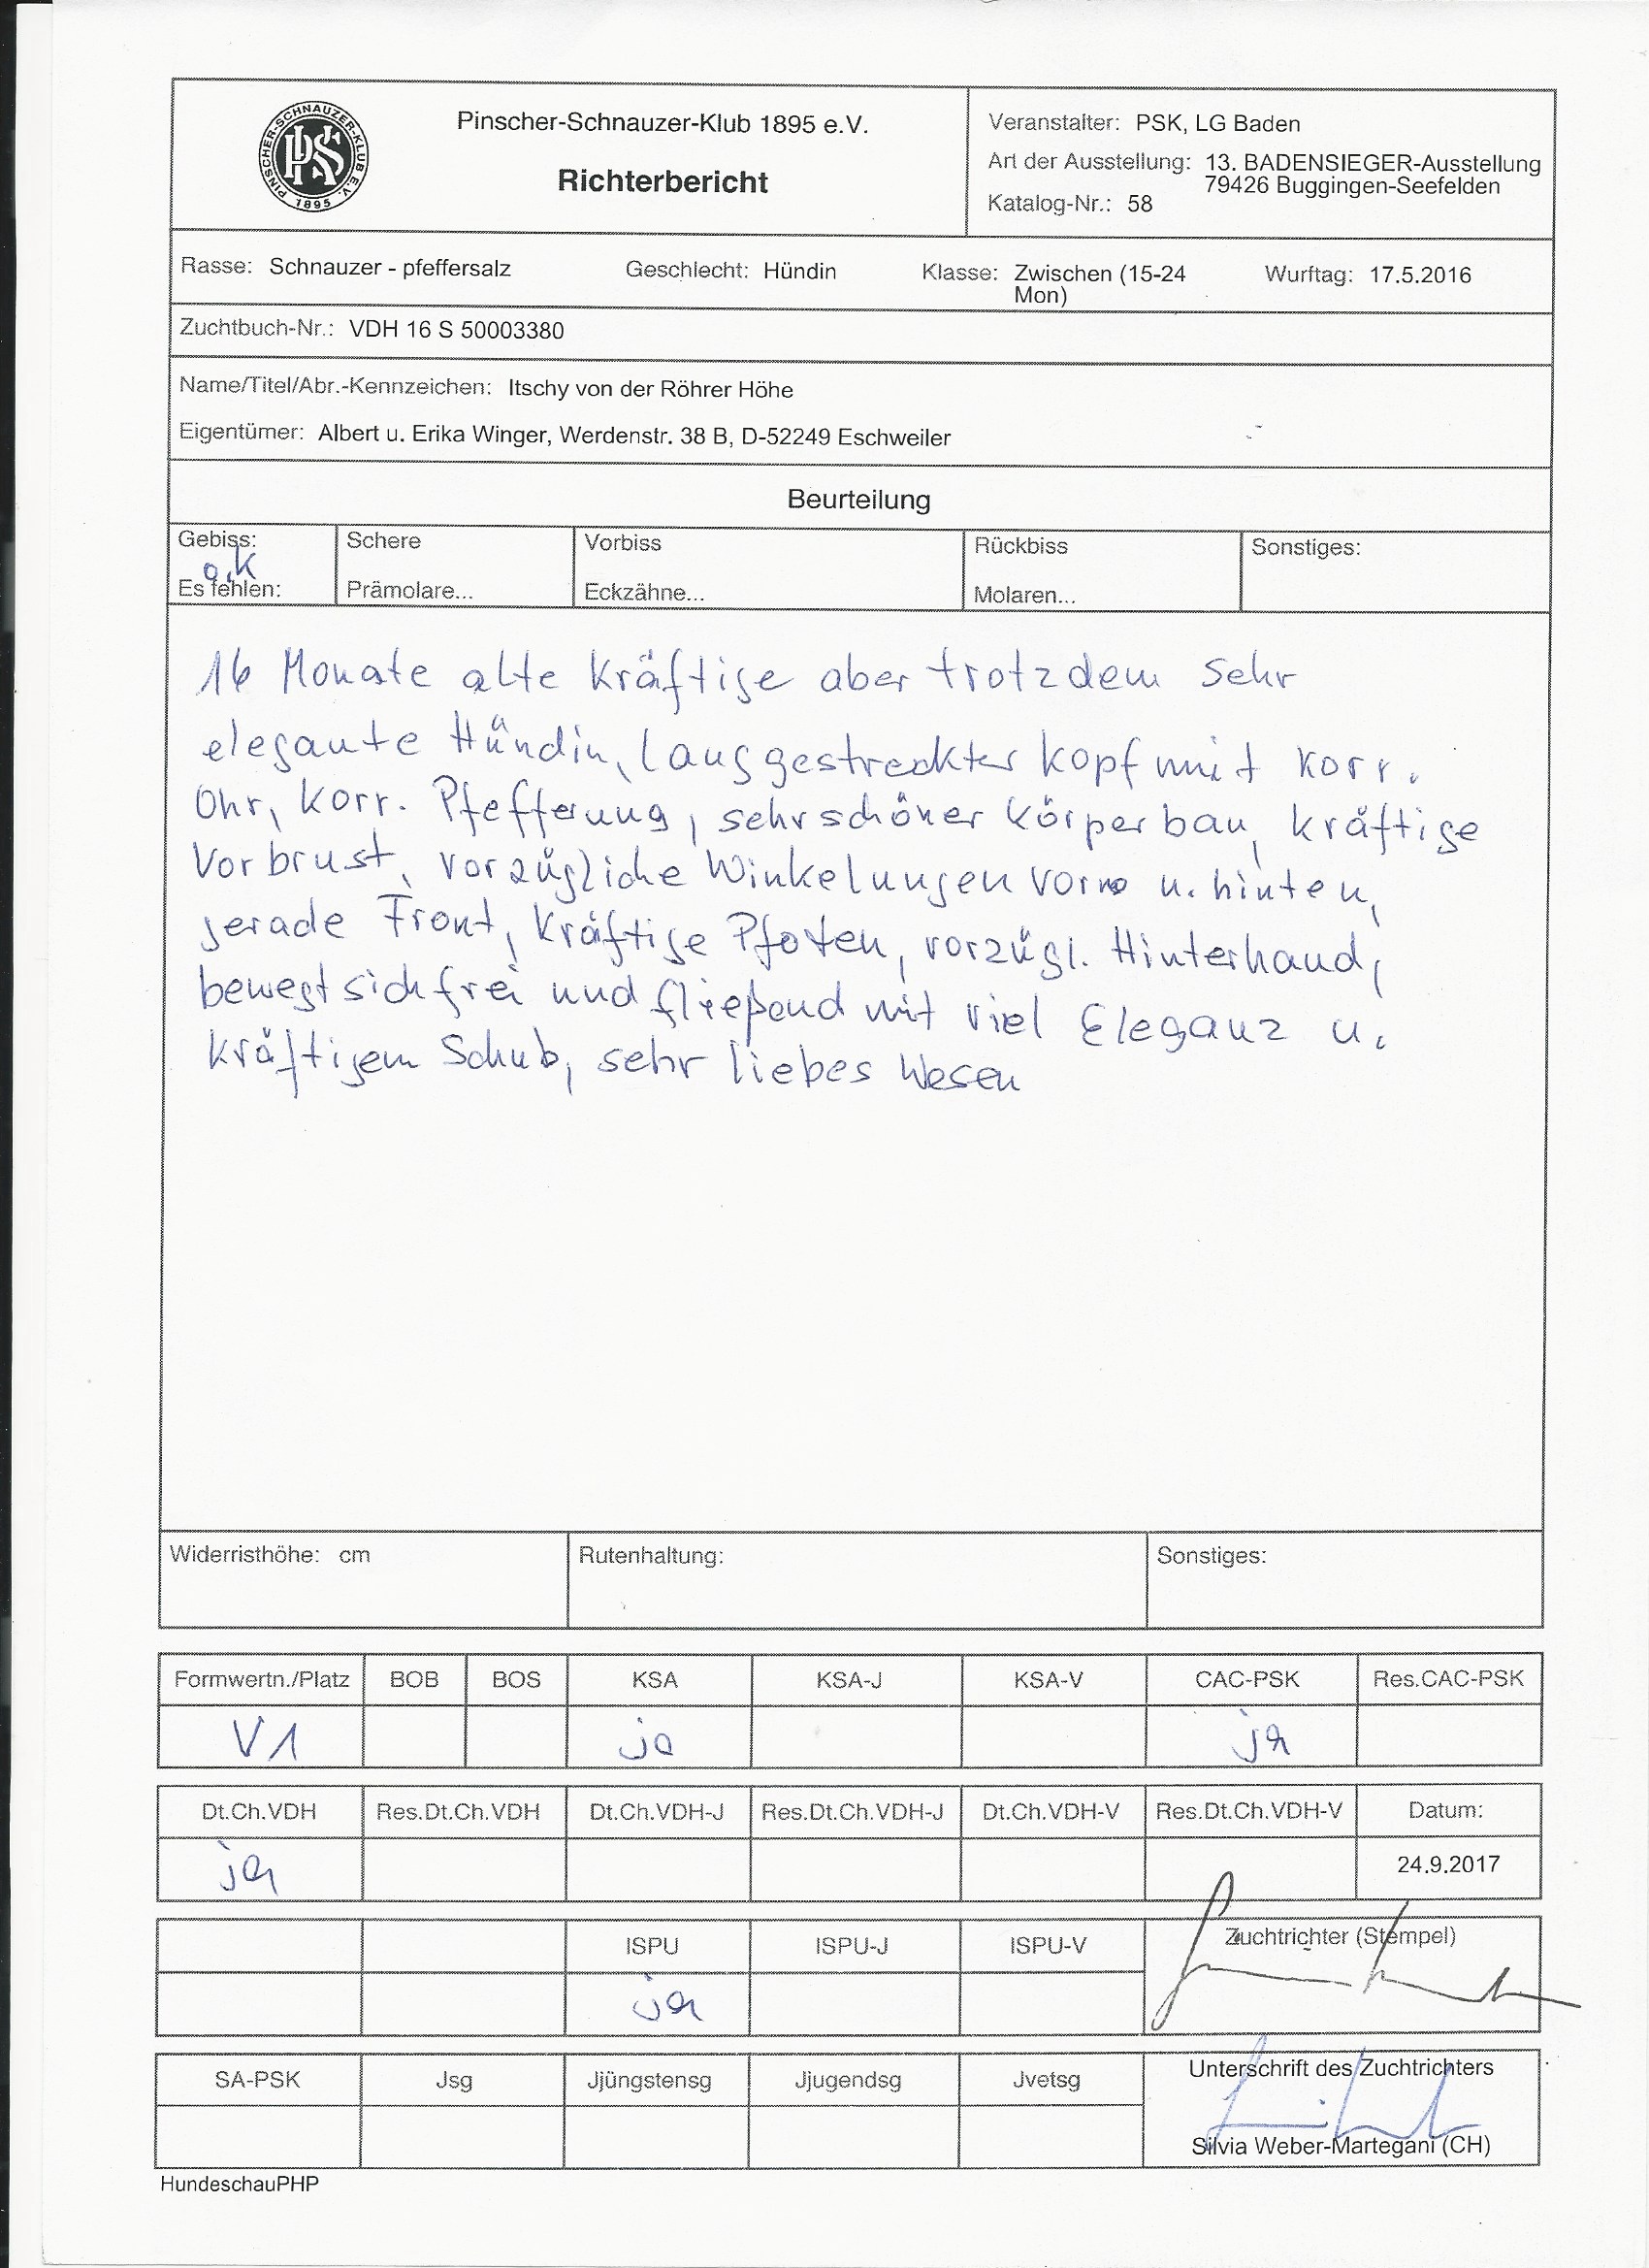 PINSCHER-SCHNAUZER-KLUB E.V.
PSK
1895
Pinscher-Schnauzer-Klub 1895 e.V.
Richterbericht
Veranstalter: PSK, LG Baden
Art der Ausstellung: 13. BADENSIEGER-Ausstellung
79426 Buggingen-Seefelden
Katalog-Nr.: 58
Rasse: Schnauzer - pfeffersalz Geschlecht: Hündin Klasse: Zwischen (15-24 Wurftag: 17.5.2016
Mon)
Zuchtbuch-Nr.: VDH 16 S 50003380
Name/Titel/Abr.-Kennzeichen: Itschy von der Röhrer Höhe
Eigentümer: Albert u. Erika Winger, Werdenstr. 38 B, D-52249 Eschweiler
Beurteilung
Gebiss: Schere Vorbiss Rückbiss Sonstiges:
o.k
Es fehlen: Prämolare... Eckzähne... Molaren...
16 Monate alte kräftige aber trotzdem sehr
elegante Hündin, langgestreckter Kopf mit korr.
Ohr, korr. Pfefferung, sehr schöner Körperbau, kräftige
Vorbrust, vorzügliche Winkelungen vorne u. hinten,
gerade Front, kräftige Pfoten, vorzügl. Hinterhand,
bewegt sich frei und fließend mit viel Eleganz u.
kräftigem Schub, sehr liebes Wesen
Widerristhöhe: cm Rutenhaltung: Sonstiges:
Formwertn./Platz BOB BOS KSA KSA-J KSA-V CAC-PSK Res.CAC-PSK
V1 ja ja
Dt.Ch.VDH Res.Dt.Ch.VDH Dt.Ch.VDH-J Res.Dt.Ch.VDH-J Dt.Ch.VDH-V Res.Dt.Ch.VDH-V Datum:
ja 24.9.2017
ISPU ISPU-J ISPU-V Zuchtrichter (Stempel)
ja
SA-PSK Jsg Jjüngstensg Jjugendsg Jvetsg Unterschrift des Zuchtrichters
Silvia Weber-Martegani (CH)
HundeschauPHP